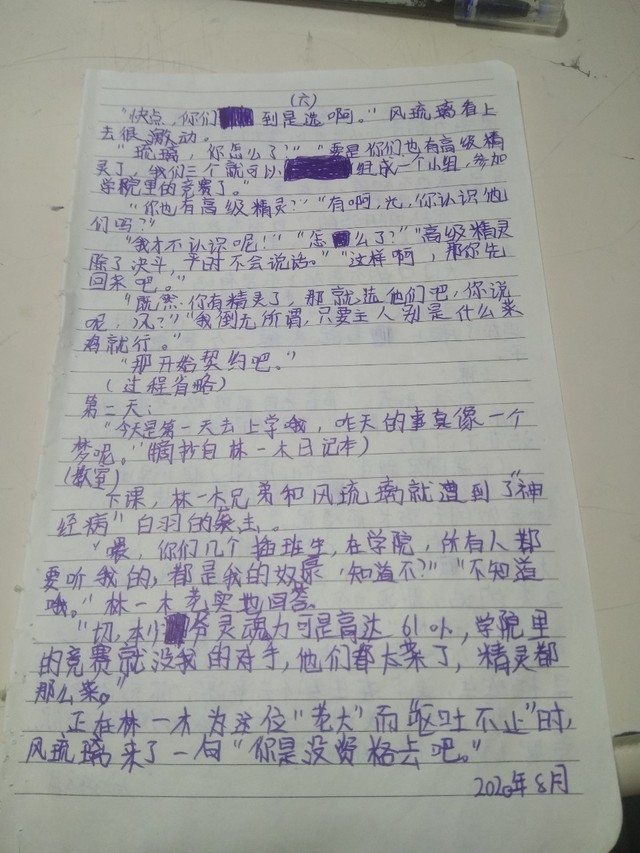 （六）
“快点，你们到是选啊。”风琉璃看上
去很激动。
“琉璃，你怎么了？”“要是你们也有高级精
灵了，我们三个就可以组成一个小组，参加
学院里的竞赛了。”
“你也有高级精灵？”“有啊，光，你认识他
们吗？”
“我才不认识呢！”“怎么了？”“高级精灵
除了决斗，平时不会说话。”“这样啊，那你先
回来吧。”
“既然你有精灵了，那就选他们吧，你说
呢，风？”“我倒无所谓，只要主人别是什么菜
鸡就行。”
“那开始契约吧。”
（过程省略）
第二天：
“今天是第一天去上学哦，昨天的事真像一个
梦呢。”（摘抄自林一木日记本）
（教室）
下课，林一木兄弟和风琉璃就遭到了“神
经病”白羽的袭击。
“喂，你们几个插班生，在学院，所有人都
要听我的，都是我的奴隶，知道不？”“不知道
哦。”林一木老实地回答。
“切，本少爷灵魂力可是高达61%，学院里
的竞赛就没我的对手，他们都太菜了，精灵都
那么菜。”
正在林一木为这位“老大”而“呕吐不止”时，
风琉璃来了一句“你是没资格去吧。”
2020年8月